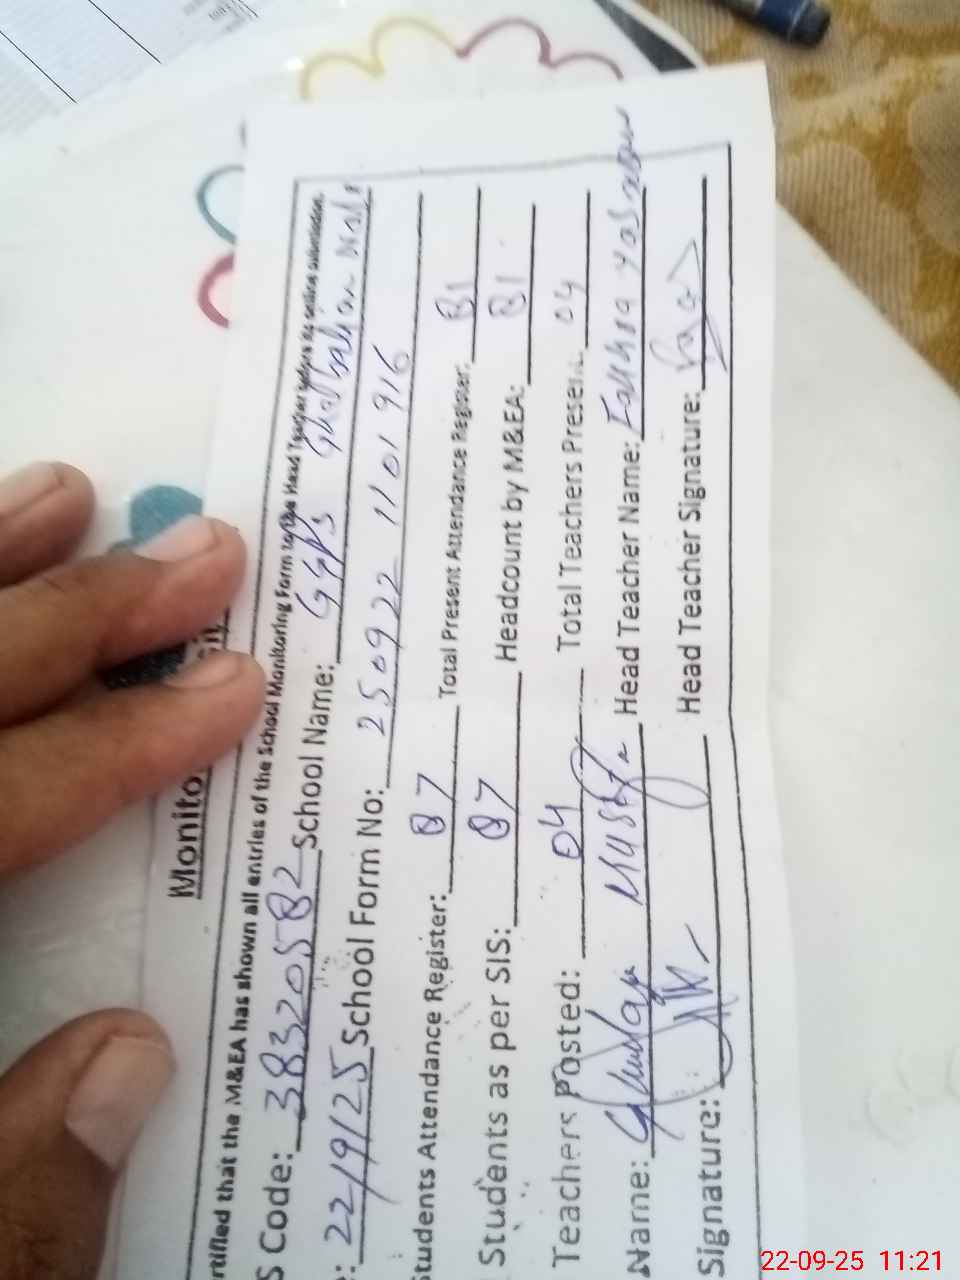 Monito
rtified that the M&EA has shown all entries of the School Monitoring Form to the Head Teacher before its online submission.
S Code: 38320582 School Name: GGPS
: 22/9/25 School Form No: 250922 1101 916
Students Attendance Register: 87 Total Present Attendance Register: 81
Students as per SIS: 87 Headcount by M&EA: 81
Teachers Posted: 04 Total Teachers Present: 04
Name: Ghulam Mustafa Head Teacher Name: Yasmeen
Signature: Head Teacher Signature:
22-09-25 11:21